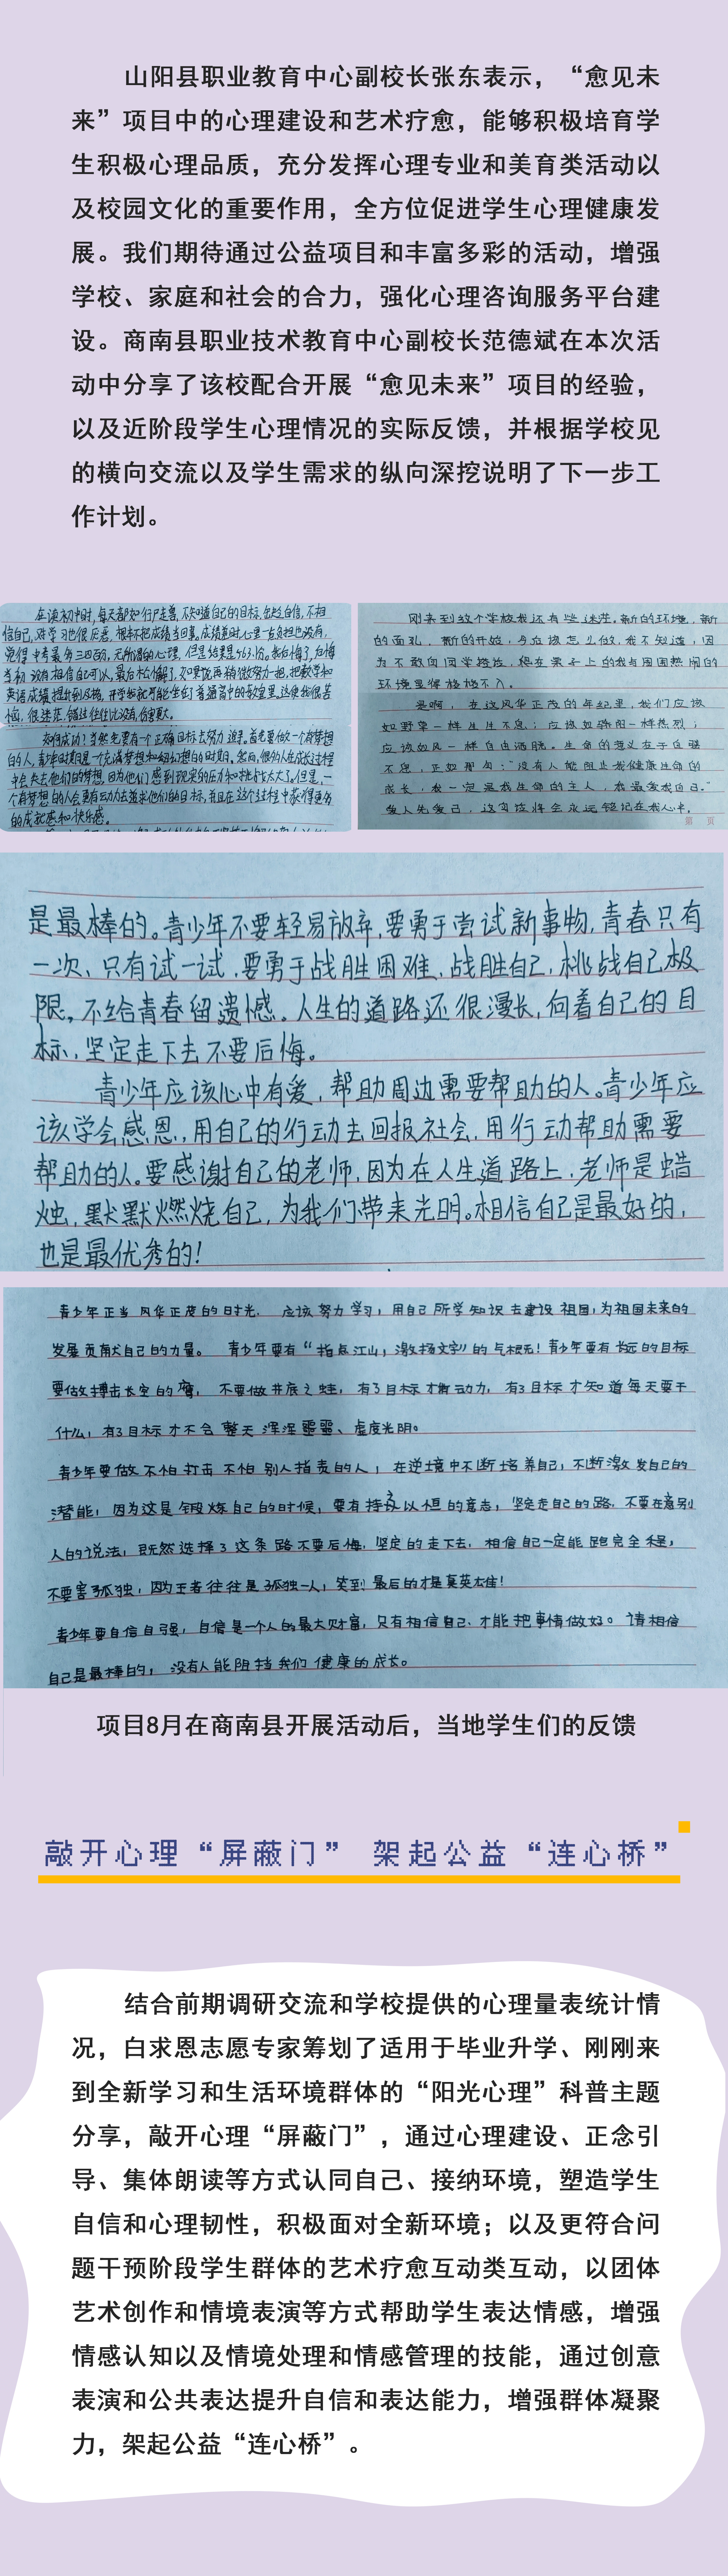 山阳县职业教育中心副校长张东表示，“愈见未
来”项目中的心理建设和艺术疗愈，能够积极培育学
生积极心理品质，充分发挥心理专业和美育类活动以
及校园文化的重要作用，全方位促进学生心理健康发
展。我们期待通过公益项目和丰富多彩的活动，增强
学校、家庭和社会的合力，强化心理咨询服务平台建
设。商南县职业技术教育中心副校长范德斌在本次活
动中分享了该校配合开展“愈见未来”项目的经验，
以及近阶段学生心理情况的实际反馈，并根据学校见
的横向交流以及学生需求的纵向深挖说明了下一步工
作计划。
在读初中时，每天都如行尸走兽，不知道自己的目标，包括自信，不相
信自己，对学习也很厌恶，根本不把成绩当回事。成绩差时心里一点负担也没有，
觉得中考最多三四百，无所谓的心理，但是结果是
当初没有相信自己可以，最后松懈了，如果能再稍微努力一把，把数学和
英语成绩提升到及格，开学也就可能坐在了普通高中的教室里。这使我很苦
恼，很迷茫，错过往往比没有，伤害更大。
如何成功？当然先要有一个正确目标去努力追寻。首先要做一个有梦想
的人，青少年时期是一个充满梦想和幻想的时期。然而，很多人在成长过程
中会失去他们的梦想，因为他们感到现实的压力和挑战太大了。但是，一
个有梦想的人会更有动力去追求他们的目标，并且在这个过程中获得更多
的成就感和快乐感。
刚来到这个学校我还有些迷茫。新的环境，新
的面孔，新的开始，今后该怎么做，我不知道，因
为不敢向同学搭讪，稳在桌子上的我与周围热闹的
环境显得格格不入。
是啊，在这风华正茂的年纪里，我们应该
如野草一样生生不息；应该如骄阳一样热烈；
应该如风一样自由洒脱。生命的意义在于自强
不息，正如那句：“没有人能阻止我健康生命的
成长，我一定是我生命的主人，我最爱我自己。”
爱人先爱己，这句话将会永远铭记在我心中。
第 页
是最棒的。青少年不要轻易放弃，要勇于尝试新事物，青春只有
一次、只有试一试，要勇于战胜困难、战胜自己，挑战自己极
限，不给青春留遗憾。人生的道路还很漫长，向着自己的目
标，坚定走下去不要后悔。
青少年应该心中有爱，帮助周边需要帮助的人。青少年应
该学会感恩，用自己的行动去回报社会，用行动帮助需要
帮助的人。要感谢自己的老师，因为在人生道路上，老师是蜡
烛，默默燃烧自己，为我们带来光明。相信自己是最好的，
也是最优秀的！
青少年正当风华正茂的时光，应该努力学习，用自己所学知识去建设祖国，为祖国未来的
发展贡献自己的力量。青少年要有“指点江山，激扬文字”的气概！青少年要有长远的目标
要做搏击长空的鹰，不要做井底之蛙，有了目标才有动力，有了目标才知道每天要干
什么，有了目标才不会整天浑浑噩噩、虚度光阴。
青少年要做不怕打击不怕别人指责的人，在逆境中不断培养自己，不断激发自己的
潜能，因为这是锻炼自己的时候，要有持之以恒的意志，坚定走自己的路，不要在意别
人的说法，既然选择了这条路不要后悔，坚定的走下去，相信自己一定能跑完全程，
不要害孤独，因为王者往往是孤独一人，笑到最后的才是真英雄！
青少年要自信自强，自信是一个人的最大财富，只有相信自己、才能把事情做好。请相信
自己是最棒的，没有人能阻挡我们健康的成长。
项目8月在商南县开展活动后，当地学生们的反馈
敲开心理“屏蔽门” 架起公益“连心桥”
结合前期调研交流和学校提供的心理量表统计情
况，白求恩志愿专家筹划了适用于毕业升学、刚刚来
到全新学习和生活环境群体的“阳光心理”科普主题
分享，敲开心理“屏蔽门”，通过心理建设、正念引
导、集体朗读等方式认同自己、接纳环境，塑造学生
自信和心理韧性，积极面对全新环境；以及更符合问
题干预阶段学生群体的艺术疗愈互动类互动，以团体
艺术创作和情境表演等方式帮助学生表达情感，增强
情感认知以及情境处理和情感管理的技能，通过创意
表演和公共表达提升自信和表达能力，增强群体凝聚
力，架起公益“连心桥”。